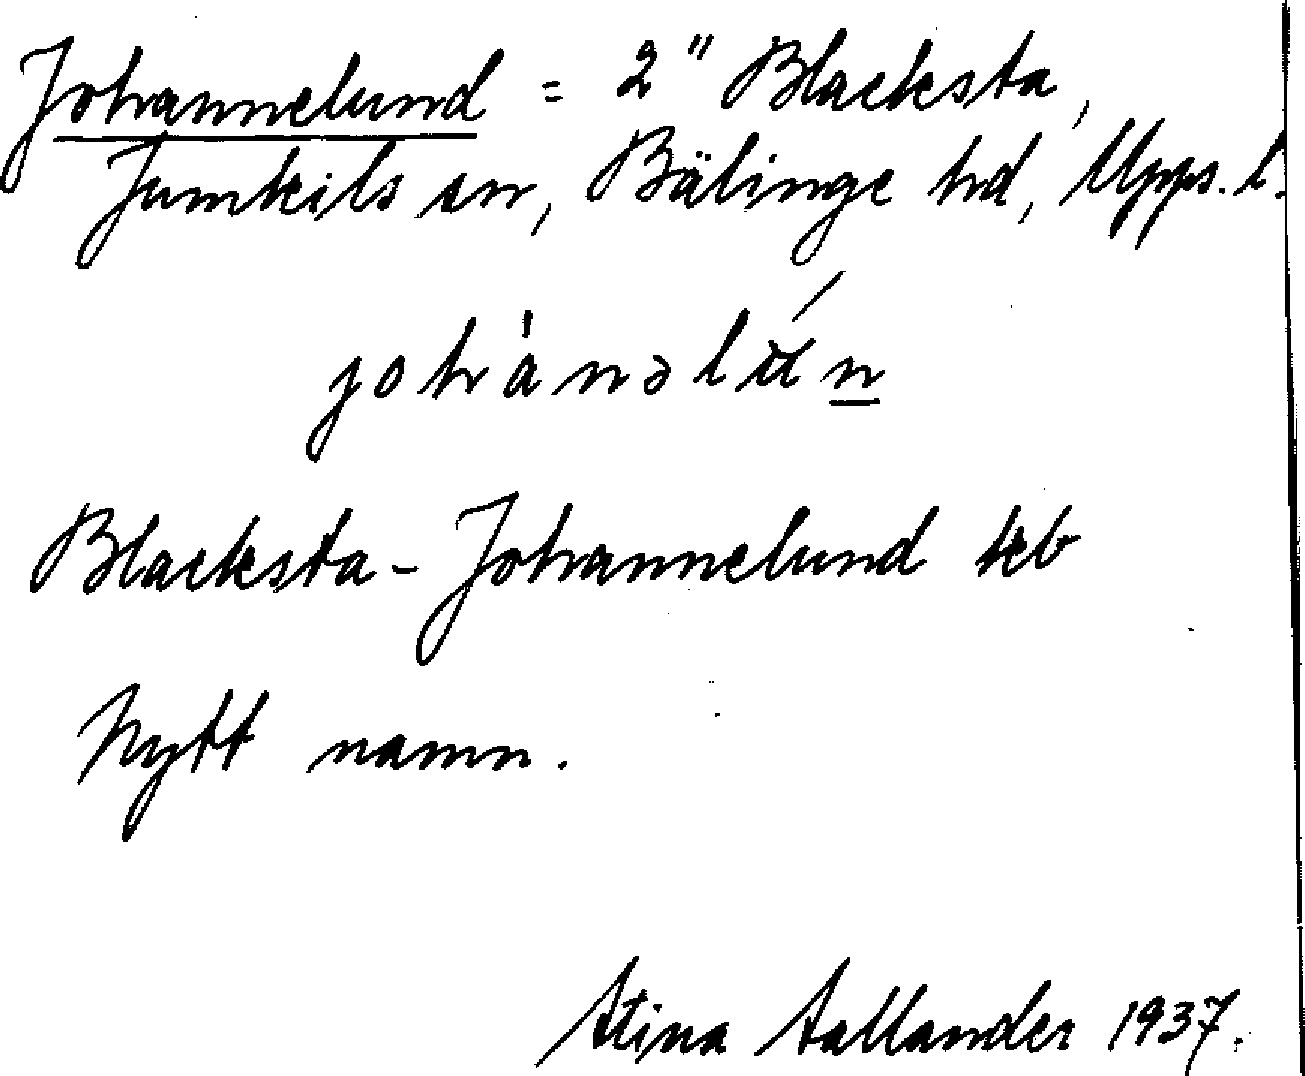 Johannelund = 2" Blacksta,
Jumkils sn, Bälinge hd, Upps. l.
johànəlún
Blacksta-Johannelund kb
Nytt namn.
Stina Sallander 1937.